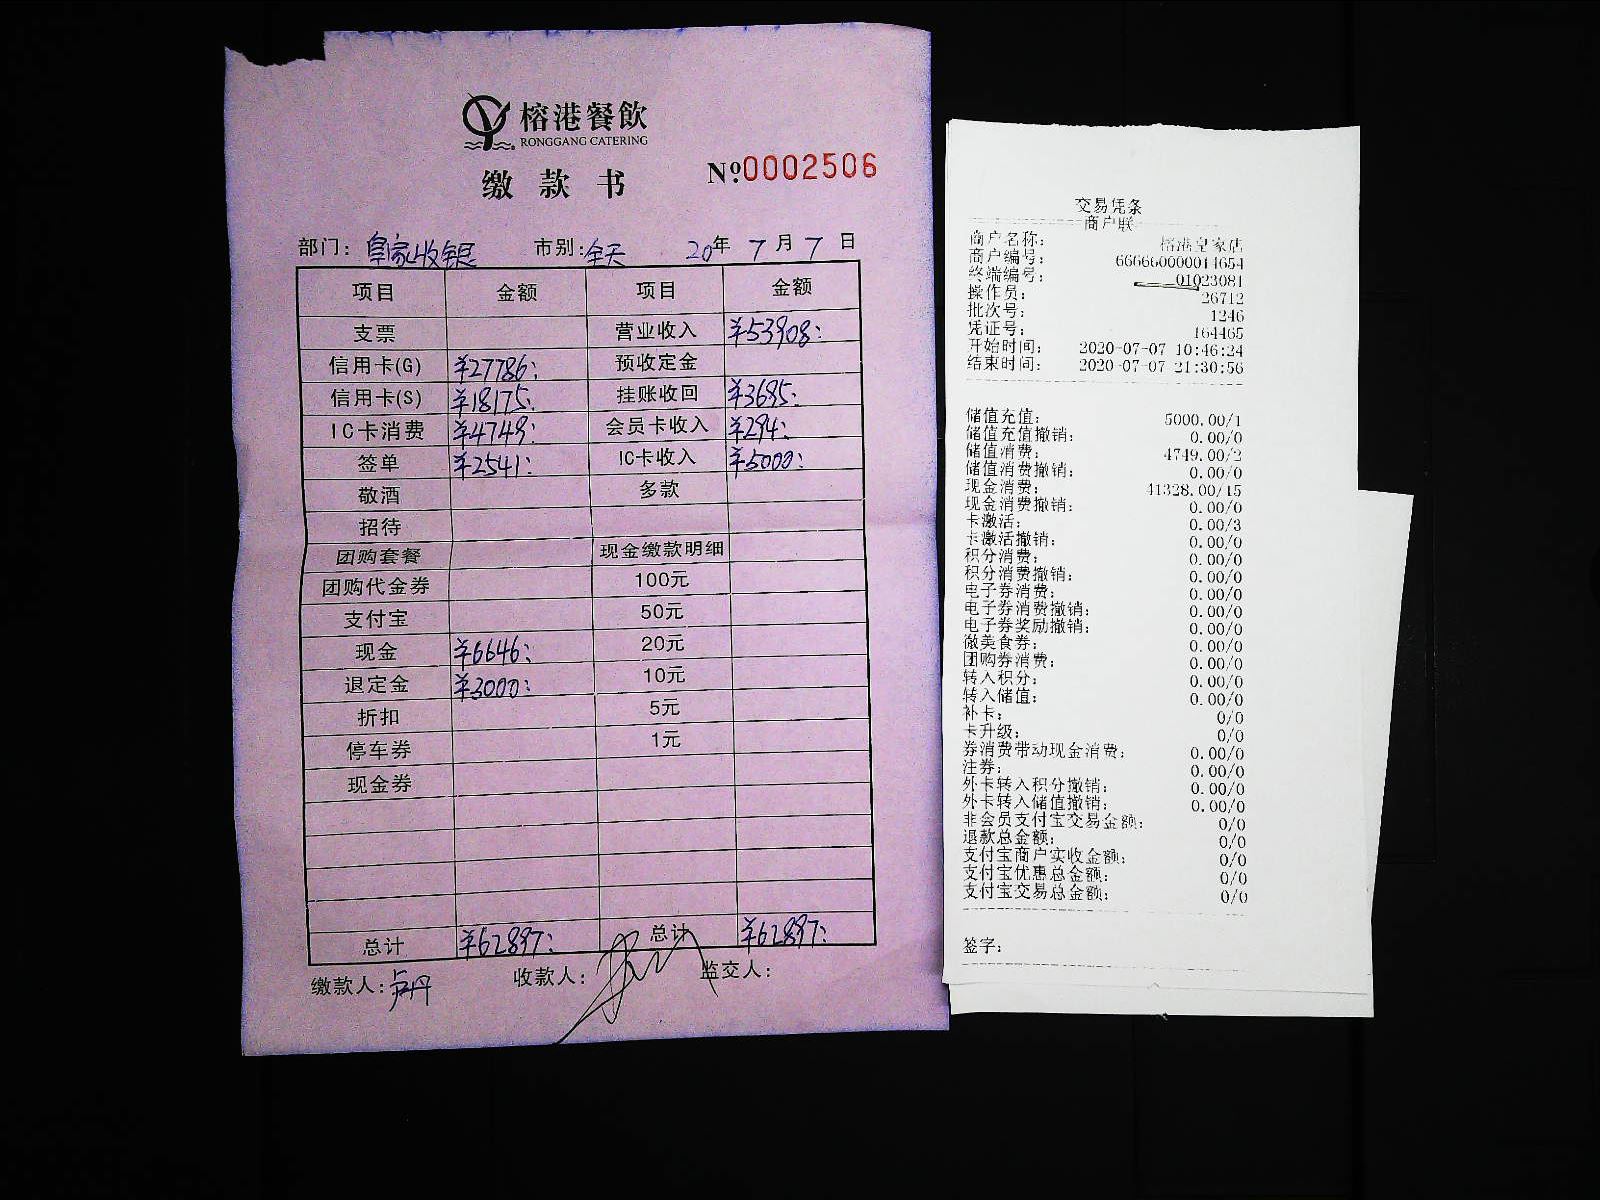 榕港餐飲
RONGGANG CATERING
缴款书
№0002506
部门：皇家收银 市别：全天 20年7月7日
项目 金额 项目 金额
支票 营业收入 ¥53908:
信用卡(G) ¥27786: 预收定金
信用卡(S) ¥18175: 挂账收回 ¥3695:
IC卡消费 ¥4749: 会员卡收入 ¥294:
签单 ¥2541: IC卡收入 ¥5000:
敬酒 多款
招待
团购套餐 现金缴款明细
团购代金券 100元
支付宝 50元
现金 ¥6646: 20元
退定金 ¥3000: 10元
折扣 5元
停车券 1元
现金券
总计 ¥62897: 总计 ¥62897:
缴款人：卢丹 收款人： 监交人：
交易凭条
商户联
商户名称： 榕港皇家店
商户编号： 666660000014654
终端编号： 01023081
操作员： 26712
批次号： 1246
凭证号： 164465
开始时间： 2020-07-07 10:46:24
结束时间： 2020-07-07 21:30:56
储值充值： 5000.00/1
储值充值撤销： 0.00/0
储值消费： 4749.00/2
储值消费撤销： 0.00/0
现金消费： 41328.00/15
现金消费撤销： 0.00/0
卡激活： 0.00/3
卡激活撤销： 0.00/0
积分消费： 0.00/0
积分消费撤销： 0.00/0
电子券消费： 0.00/0
电子券消费撤销： 0.00/0
电子券奖励撤销： 0.00/0
微美食券： 0.00/0
团购券消费： 0.00/0
转入积分： 0.00/0
转入储值： 0.00/0
补卡： 0/0
卡升级： 0/0
券消费带动现金消费： 0.00/0
注券： 0.00/0
外卡转入积分撤销： 0.00/0
外卡转入储值撤销： 0.00/0
非会员支付宝交易金额： 0/0
退款总金额： 0/0
支付宝商户实收金额： 0/0
支付宝优惠总金额： 0/0
支付宝交易总金额： 0/0
签字：